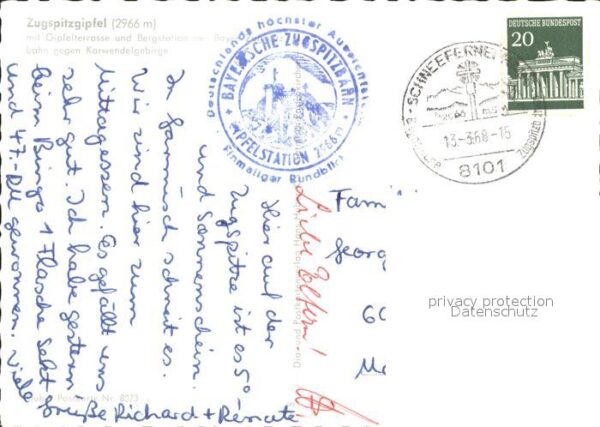 Zugspitzgipfel (2966 m)
mit Gipfelterrasse und Bergstation der Bayer.
bahn gegen Karwendelgebirge
Deutschlands höchster Aussichts
BAYERISCHE ZUGSPITZBAHN
GIPFELSTATION 2966 m
Einmaliger Rundblick
DEUTSCHE BUNDESPOST
20
SCHNEEFERNER
13.-3.68-15
8101
Liebe Eltern!
Hier auf der
Zugspitze ist es 5°
und Sonnenschein.
In Garmisch schneit es.
Wir sind hier zum
Mittagessen. Es gefällt uns
sehr gut. Ich habe gestern
beim Bingo 1 Flasche Sekt
und 47.- DM gewonnen. Viele
Grüße Richard + Renate
Fami
Georg
60
privacy protection
Datenschutz
Postkarte Nr. 8373